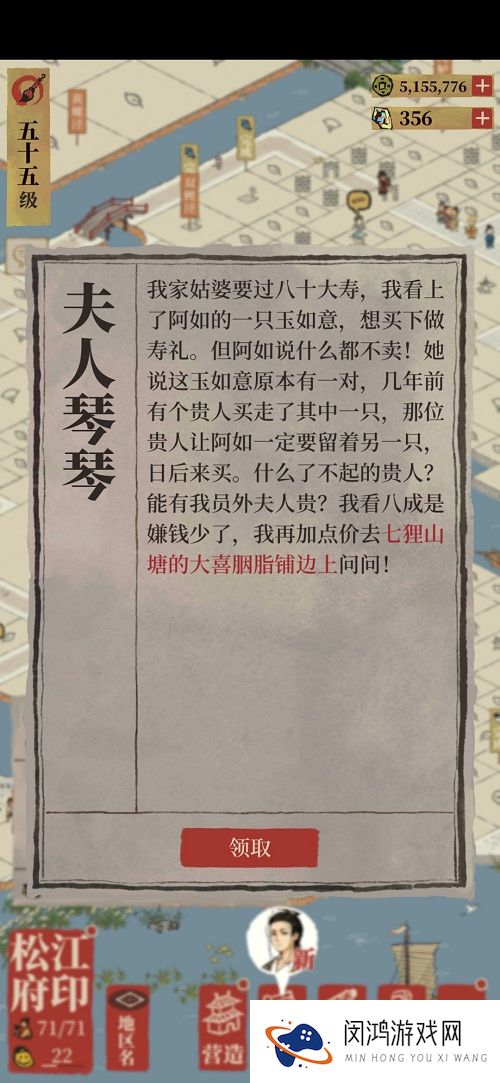 五十五级
5,155,776
356
夫人琴琴
我家姑婆要过八十大寿，我看上
了阿如的一只玉如意，想买下做
寿礼。但阿如说什么都不卖！她
说这玉如意原本有一对，几年前
有个贵人买走了其中一只，那位
贵人让阿如一定要留着另一只，
日后来买。什么了不起的贵人？
能有我员外夫人贵？我看八成是
嫌钱少了，我再加点价去七狸山
塘的大喜胭脂铺边上问问！
领取
松江
府印
71/71
22
地区名
营造
新
闵鸿游戏网
MIN HONG YOU XI WANG